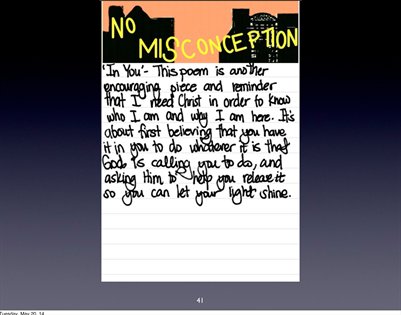 NO
MISCONCEPTION
'In You' - This poem is another
encouraging piece and reminder
that I need Christ in order to know
who I am and why I am here. It's
about first believing that you have
it in you to do whatever it is that
God is calling you to do, and
asking Him to help you release it
so you can let your light shine.
41
Tuesday, May 20, 14